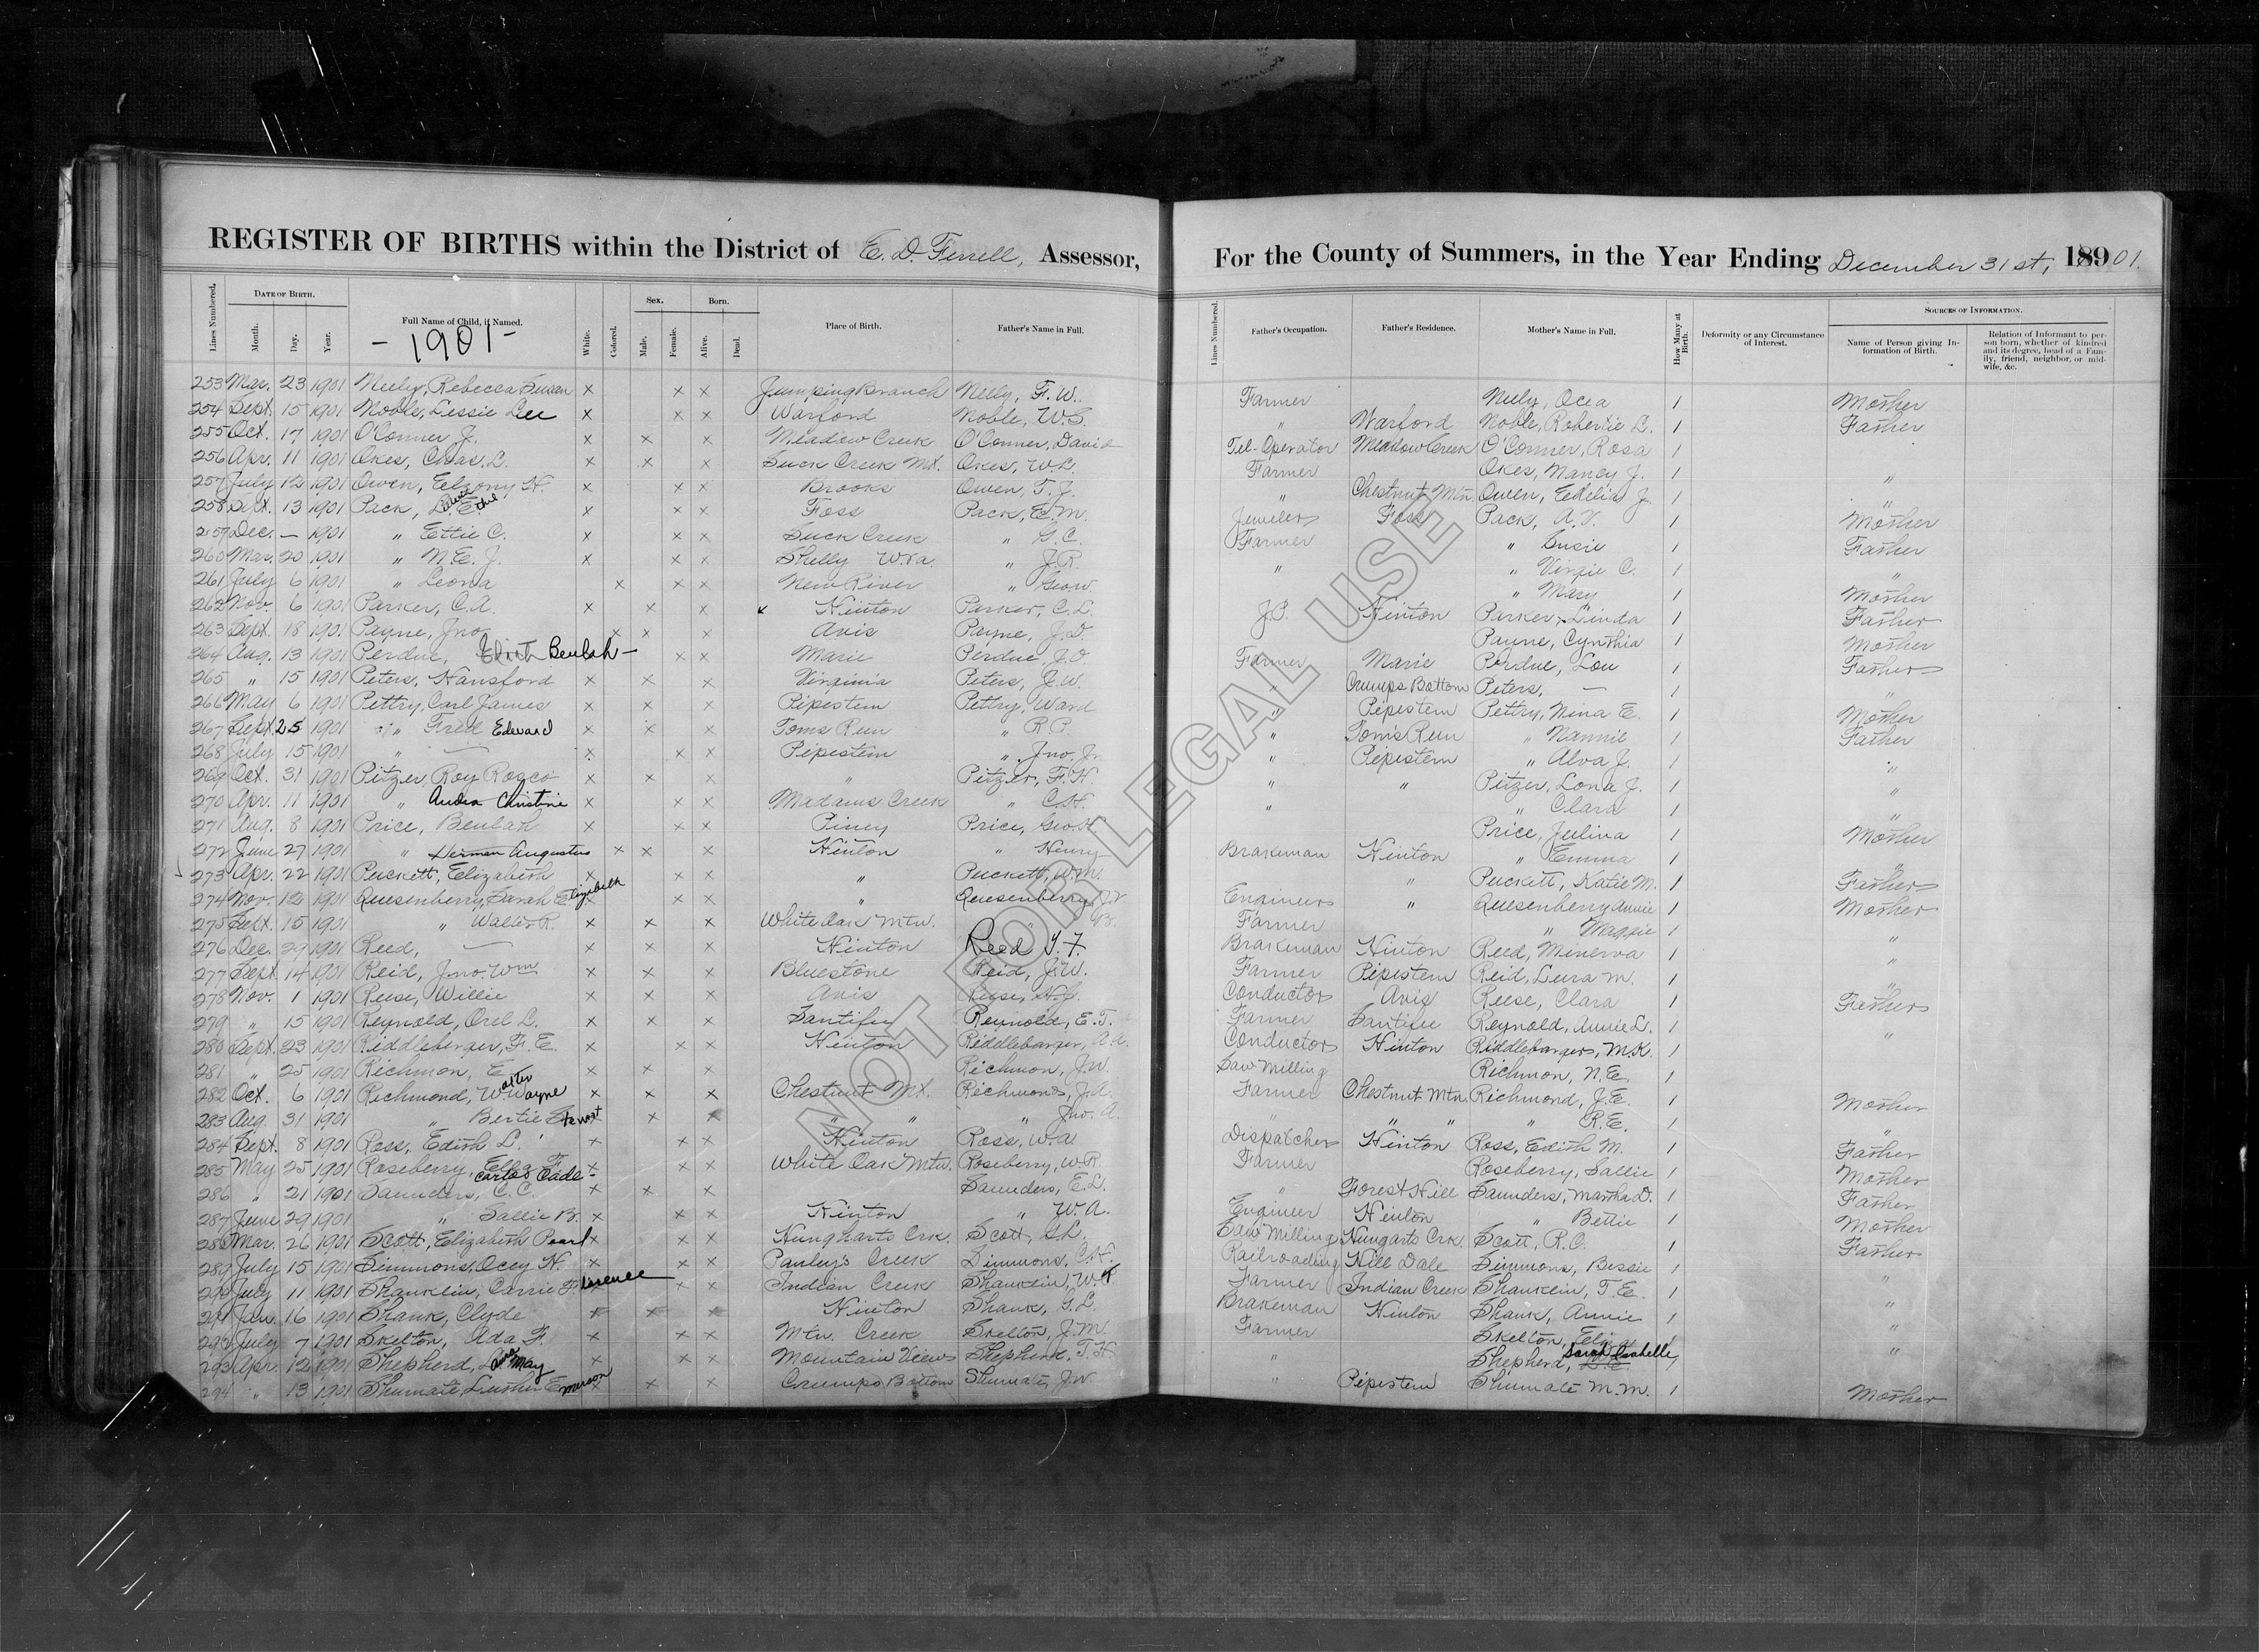 REGISTER OF BIRTHS within the District of E. D. Ferrell, Assessor, For the County of Summers, in the Year Ending December 31st, 18901.
Lines Numbered. DATE OF BIRTH. Month. Day. Year. Full Name of Child, if Named. White. Colored. Sex. Male. Female. Born. Alive. Dead. Place of Birth. Father's Name in Full. Lines Numbered. Father's Occupation. Father's Residence. Mother's Name in Full. How Many at Birth. Deformity or any Circumstance of Interest. SOURCES OF INFORMATION. Name of Person giving Information of Birth. Relation of Informant to person born, whether of kindred and its degree, head of a Family, friend, neighbor, or midwife, &c.
- 1901 -
253 Mar. 23 1901 Neely, Rebecca Susan x x x Jumping Branch Neely, F. W. Farmer Neely, Ocea 1 Mother
254 Sept. 15 1901 Noble, Lessie Lee x x x Warford Noble, W. G. " Warford Noble, Robertie L. 1 Father
255 Oct. 17 1901 O'Conner J. x x x Meadow Creek O'Conner, David Tel-Operator Meadow Creek O'Conner, Rosa 1
256 Apr. 11 1901 Okes, Chas. L. x x x Suck Creek Mt. Okes, W. L. Farmer Okes, Nancy J. 1 "
257 July 12 1901 Owen, H. x x x Brooks Owen, T. J. " Chestnut Mtn. Owen, Edelia J. 1 "
258 Oct. 13 1901 Pack, L. Ethel x x x Foss Pack, E. M. Jeweler Foss Pack, A. V. 1 Mother
259 Dec. — 1901 " Ettie C. x x x Suck Creek " G. C. Farmer " Susie 1 Father
260 Mar. 20 1901 " N. E. J. x x x Shelly W. Va. " J. R. " " Virgie C. 1 "
261 July 6 1901 " Leona x x x New River " Geo. W. " Mary 1 Mother
262 Nov. 6 1901 Parker, C. A. x x x Hinton Parker, C. L. J. P. Hinton Parker, Linda 1 Father
263 Sept. 18 1901 Payne, Jno. x x x Avis Payne, J. D. Payne, Cynthia 1 Mother
264 Aug. 13 1901 Perdue, Edith Beulah — x x Marie Perdue, J. O. Farmer Marie Perdue, Lou 1 Father
265 " 15 1901 Peters, Hansford x x x Virginia Peters, J. W. " Crumps Bottom Peters, — 1 "
266 May 6 1901 Pettry, Carl James x x x Pipestem Pettry, Ward " Pipestem Pettry, Nina E. 1 Mother
267 Sept. 25 1901 " Fred Edward x x x Toms Run " R. P. " Toms Run " Nannie 1 Father
268 July 15 1901 " — x x x Pipestem " Jno. Jr. " Pipestem " Alva J. 1 "
269 Oct. 31 1901 Pitzer, Roy Rosco x x x " Pitzer, F. H. " " Pitzer, Lona J. 1 "
270 Apr. 11 1901 " Audra Christine x x x Madams Creek " C. H. " " Clara 1 "
271 Aug. 8 1901 Price, Beulah x x x Piney Price, Geo. H. Price, Julina 1 Mother
272 June 27 1901 " Herman Augustus x x x Hinton " Henry Brakeman Hinton " Emma 1 "
273 Apr. 22 1901 Puckett, Elizabeth x x x " Puckett, W. M. " Puckett, Katie M. 1 Father
274 Nov. 12 1901 Quesenberry, Sarah Elizabeth x x x " Quesenberry, Engineer " Quesenberry Annie 1 Mother
275 Sept. 15 1901 " Walter R. x x x White Oak Mtn. Farmer " Maggie 1 "
276 Dec. 29 1901 Reed, — x x x Hinton Reed Y. F. Brakeman Hinton Reed, Minerva 1 "
277 Sept 14 1901 Reid, Jno. Wm x x x Bluestone Reid, J. W. Farmer Pipestem Reid, Lura M. 1 "
278 Nov. 1 1901 Reese, Willie x x x Avis Reese, H. J. Conductor Avis Reese, Clara 1 Father
279 " 15 1901 Reynold, Orel L. x x x Santifee Reynold, E. T. Farmer Santifee Reynold, Annie L. 1 "
280 Sept. 23 1901 Riddleberger, F. E. x x x Hinton Riddlebarger, A. A. Conductor Hinton Riddlebarger, M. K. 1
281 " 25 1901 Richmon, E. x x x Richmon, J. W. Saw Milling Richmon, N. E. 1
282 Oct. 6 1901 Richmond, Walter Wayne x x x Chestnut Mt. Richmond, J. A. Farmer Chestnut Mtn. Richmond, J. E. 1 Mother
283 Aug. 31 1901 " Bertie x x x " " " Jno. A. " " " " R. E. 1 "
284 Sept. 8 1901 Ross, Edith L. x x x Hinton Ross, W. A. Dispatcher Hinton Ross, Edith M. 1 Father
285 May 25 1901 Roseberry, Ella F. x x x White Oak Mtn. Roseberry, W. R. Farmer Roseberry, Sallie 1 Mother
286 " 21 1901 Saunders, C. C. Carlos Cade - x x x Saunders, E. L. " Forest Hill Saunders, Martha D. 1 Father
287 June 29 1901 " Sallie B. x x x Hinton " W. A. Engineer Hinton " Bettie 1 Mother
288 Mar. 26 1901 Scott, Elizabeth Pearl x x x Hungharts Crk. Scott, G. L. Saw Milling Hungarts Crk. Scott, R. C. 1 Father
289 July 15 1901 Simmons, Ocey H. x x x Panley's Creek Simmons, C. H. Railroading Hill Dale Simmons, Bessie 1 "
290 July 11 1901 Shanklin, Carrie Florence x x x Indian Creek Shanklin, W. Farmer Indian Creek Shanklin, T. E. 1 "
291 Jan. 16 1901 Shank, Clyde x x x Hinton Shank, G. L. Brakeman Hinton Shank, Annie 1 "
292 July 7 1901 Skelton, Ada F. x x x Mtn. Creek Skelton, J. M. Farmer Skelton, Eliza 1 "
293 Apr. 12 1901 Shepherd, May x x x Mountain View Shepherd, T. H. " Shepherd, Sarah Isabelle 1
294 " 13 1901 Shumate, Luther Emerson x x x Crumps Bottom Shumate, J. W. " Pipestem Shumate M. M. 1 Mother
NOT FOR LEGAL USE